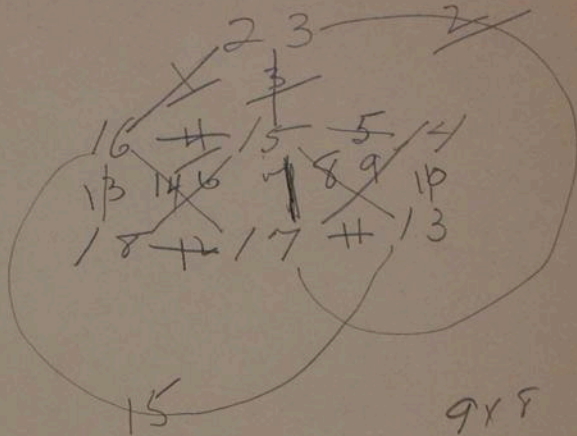 23 2
1 3
16 4 15 5 14
13 14 6 7 8 9 10
18 12 17 11 13
15 9x8